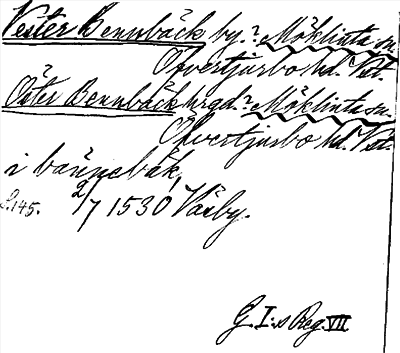 Vester Bennbäck by.? Möklinta sn.
Öfvertjurbo hd. Vst.
Öster Bennbäck hrgd.? Möklinta sn.
Öfvertjurbo hd. Vst.
i bännebäk,
S. 145. 2/7 1530 Väsby.
G. I:s Reg. VII